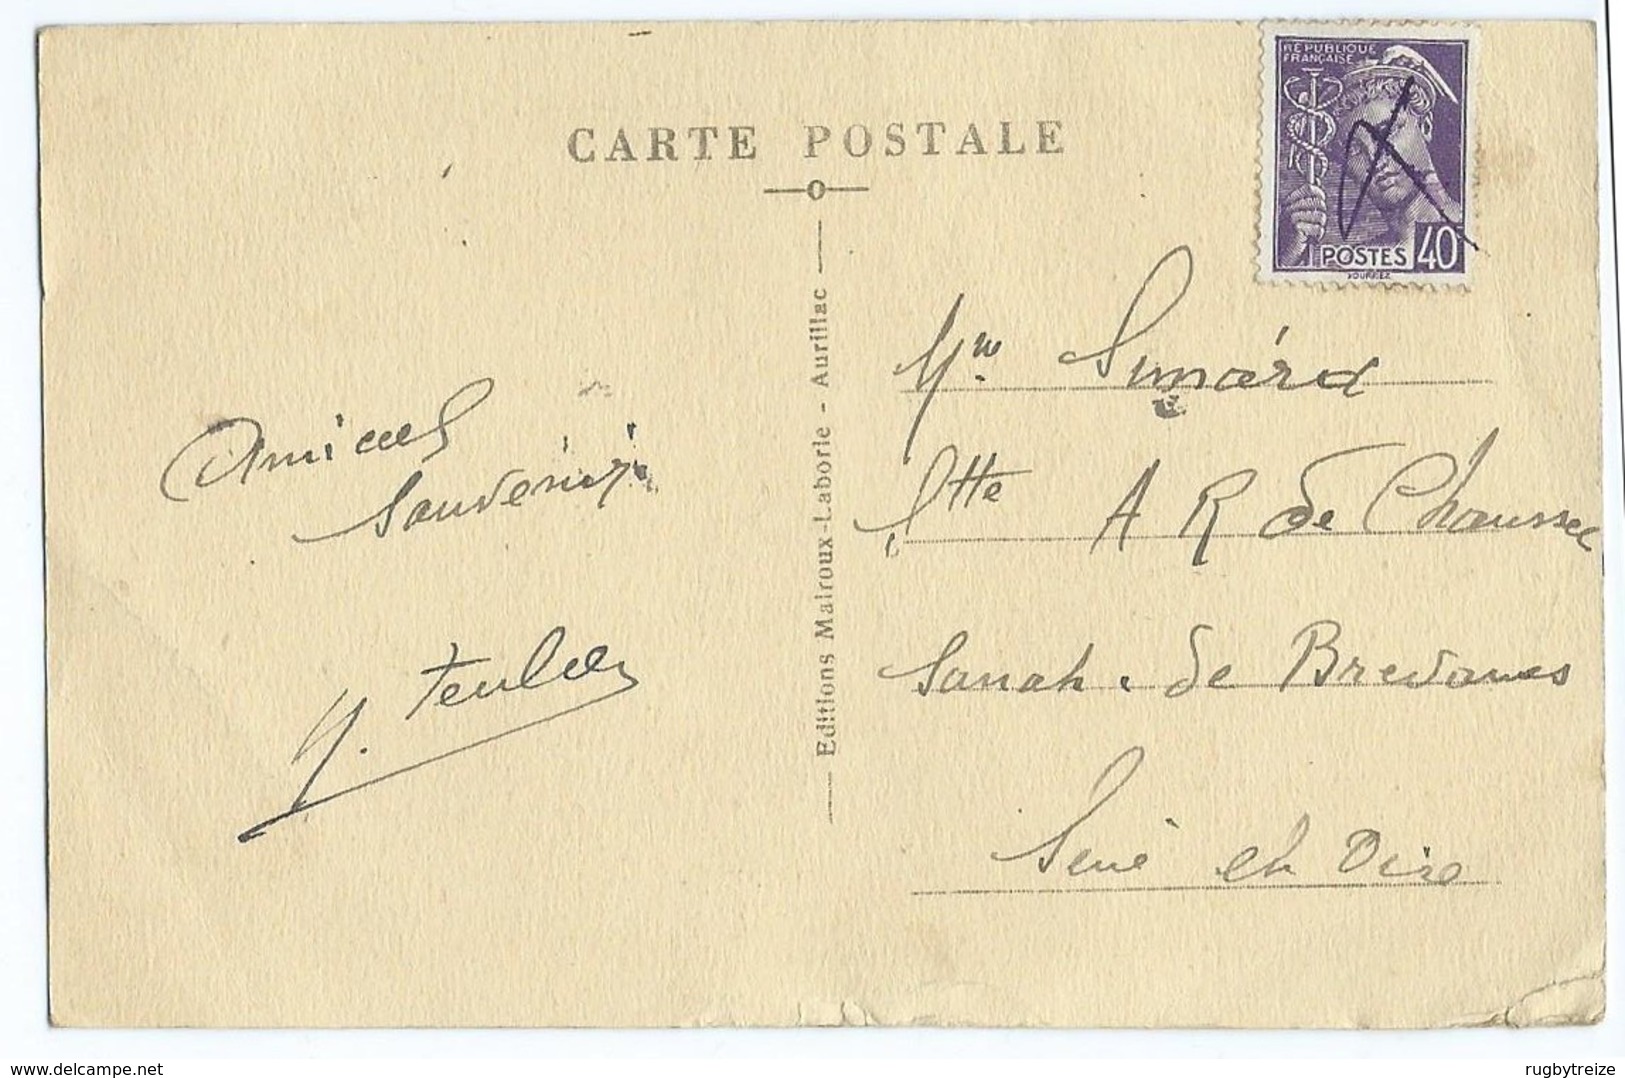 CARTE POSTALE
REPUBLIQUE
FRANÇAISE
POSTES 40
Editions Malroux-Laborie - Aurillac
Amical
Souvenir
Y. Teul
Mr Simard
A R de Chaussee
Sanah. de Brevannes
Seine et Oise
www.delcampe.net
rugbytreize